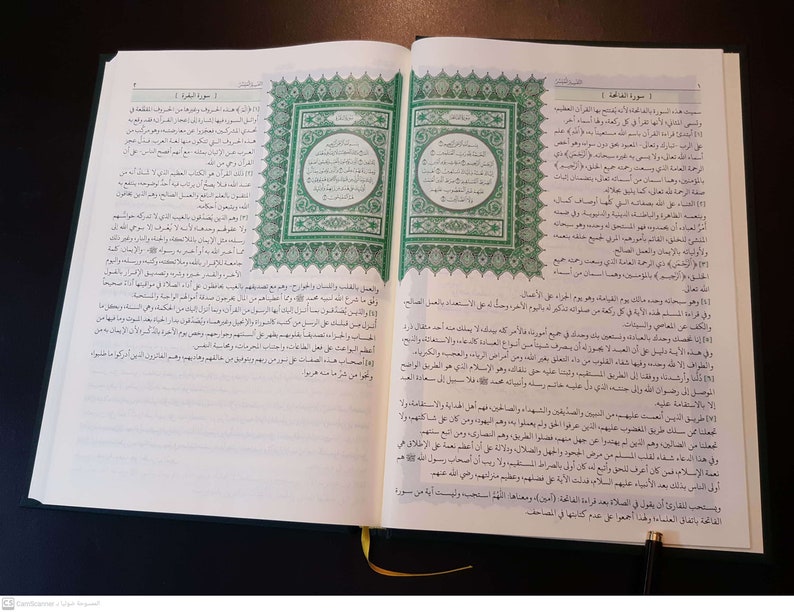 ١
التفسير الميسر
[ سورة الفاتحة ]
سميت هذه السورة بالفاتحة؛ لأنه يفتتح بها القرآن العظيم،
وتسمى المثاني؛ لأنها تقرأ في كل ركعة، ولها أسماء أخر.
[١] أبتدئ قراءة القرآن باسم الله مستعينا به، ﴿اللهِ﴾ علم
على الرب -تبارك وتعالى- المعبود بحق دون سواه، وهو أخص
أسماء الله تعالى، ولا يسمى به غيره سبحانه. ﴿الرَّحْمَنِ﴾ ذي
الرحمة العامة الذي وسعت رحمته جميع الخلق، ﴿الرَّحِيمِ﴾
بالمؤمنين، وهما اسمان من أسمائه تعالى، يتضمنان إثبات
صفة الرحمة لله تعالى كما يليق بجلاله.
[٢] الثناء على الله بصفاته التي كلُّها أوصاف كمال،
وبنعمه الظاهرة والباطنة، الدينية والدنيوية، وفي ضمنه
أمْرٌ لعباده أن يحمدوه، فهو المستحق له وحده، وهو سبحانه
المنشئ للخلق، القائم بأمورهم، المربي لجميع خلقه بنعمه،
ولأوليائه بالإيمان والعمل الصالح.
[٣] ﴿الرَّحْمَنِ﴾ ذي الرحمة العامة الذي وسعت رحمته جميع
الخلق، ﴿الرَّحِيمِ﴾ بالمؤمنين، وهما اسمان من أسماء
الله تعالى.
[٤] وهو سبحانه وحده مالك يوم القيامة، وهو يوم الجزاء على الأعمال.
وفي قراءة المسلم لهذه الآية في كل ركعة من صلواته تذكير له باليوم الآخر، وحثٌّ له على الاستعداد بالعمل الصالح،
والكف عن المعاصي والسيئات.
[٥] إنا نخصك وحدك بالعبادة، ونستعين بك وحدك في جميع أمورنا، فالأمر كله بيدك، لا يملك منه أحد مثقال ذرة.
وفي هذه الآية دليل على أن العبد لا يجوز له أن يصرف شيئًا من أنواع العبادة كالدعاء والاستغاثة والذبح
والطواف إلا لله وحده، وفيها شفاء القلوب من داء التعلق بغير الله، ومن أمراض الرياء، والعجب، والكبرياء.
[٦] دُلَّنا وأرشدنا، ووفقنا إلى الطريق المستقيم، وثبتنا عليه حتى نلقاك، وهو الإسلام، الذي هو الطريق الواضح
الموصل إلى رضوان الله وإلى جنته، الذي دلّ عليه خاتم رسله وأنبيائه محمد ﷺ، فلا سبيل إلى سعادة العبد
إلا بالاستقامة عليه.
[٧] طريق الذين أنعمت عليهم من النبيين والصدِّيقين والشهداء والصالحين، فهم أهل الهداية والاستقامة، ولا
تجعلنا ممن سلك طريق المغضوب عليهم، الذين عرفوا الحق ولم يعملوا به، وهم اليهود، ومن كان على شاكلتهم، ولا
تجعلنا من الضالين، وهم الذين لم يهتدوا عن جهل منهم، فضلوا الطريق، وهم النصارى، ومن اتبع سنتهم.
وفي هذا الدعاء شفاء لقلب المسلم من مرض الجحود والجهل والضلال، ودلالة على أن أعظم نعمة على الإطلاق هي
نعمة الإسلام، فمن كان أعرف للحق وأتبع له، كان أولى بالصراط المستقيم، ولا ريب أن أصحاب رسول الله ﷺ هم
أولى الناس بذلك بعد الأنبياء عليهم السلام، فدلت الآية على فضلهم، وعظيم منزلتهم، رضي الله عنهم.
ويستحب للقارئ أن يقول في الصلاة بعد قراءة الفاتحة: (آمين)، ومعناها: اللَّهُمَّ استجب، وليست آية من سورة
الفاتحة باتفاق العلماء؛ ولهذا أجمعوا على عدم كتابتها في المصاحف.
٢
التفسير الميسر
[ سورة البقرة ]
[١] ﴿الٓمٓ﴾ هذه الحروف وغيرها من الحروف المقطَّعة في
أوائل السور فيها إشارة إلى إعجاز القرآن؛ فقد وقع به
تحدي المشركين، فعجزوا عن معارضته، وهو مركَّب من
هذه الحروف التي تتكون منها لغة العرب. فدلَّ عجز
العرب عن الإتيان بمثله -مع أنهم أفصح الناس- على أن
القرآن وحي من الله.
[٢] ذلك القرآن هو الكتاب العظيم الذي لا شك أنه من
عند الله، فلا يصح أن يرتاب فيه أحد لوضوحه، ينتفع به
المتقون بالعلم النافع والعمل الصالح وهم الذين يخافون
الله ويتبعون أحكامه.
[٣] وهم الذين يُصَدِّقون بالغيب الذي لا تدركه حواسُّهم
ولا عقولهم وحدها؛ لأنه لا يُعْرف إلا بوحي الله إلى
رسله، مثل الإيمان بالملائكة، والجنة، والنار، وغير ذلك
مما أخبر الله به أو أخبر به رسوله ﷺ، -والإيمان: كلمة
جامعة للإقرار بالله وملائكته وكتبه ورسله واليوم
الآخر، والقدر خيره وشره، وتصديق الإقرار بالقول
والعمل بالقلب واللسان والجوارح-، وهم مع تصديقهم بالغيب يحافظون على أداء الصلاة في مواقيتها أداءً صحيحًا
وفْق ما شرع الله لنبيه محمد ﷺ، ومما أعطيناهم من المال يخرجون صدقة أموالهم الواجبة والمستحبة.
[٤] والذين يُصَدِّقون بما أُنزل إليك أيها الرسول من القرآن، وبما أنزل إليك من الحكمة، وهي السنة، وبكل ما
أُنزل مِن قبلك على الرسل من كتب، كالتوراة والإنجيل وغيرهما، ويُصَدِّقون بدار الحياة بعد الموت وما فيها من
الحساب والجزاء، تصديقًا بقلوبهم يظهر على ألسنتهم وجوارحهم. وخص يوم الآخرة بالذِّكْر؛ لأن الإيمان به من
أعظم البواعث على فعل الطاعات، واجتناب المحرمات، ومحاسبة النفس.
[٥] أصحاب هذه الصفات على نور من ربهم وبتوفيق مِن خالقهم وهاديهم، وهم الفائزون الذين أدركوا ما طلبوا،
ونَجَوا من شرِّ ما منه هربوا.
CS CamScanner الممسوحة ضوئيا بـ